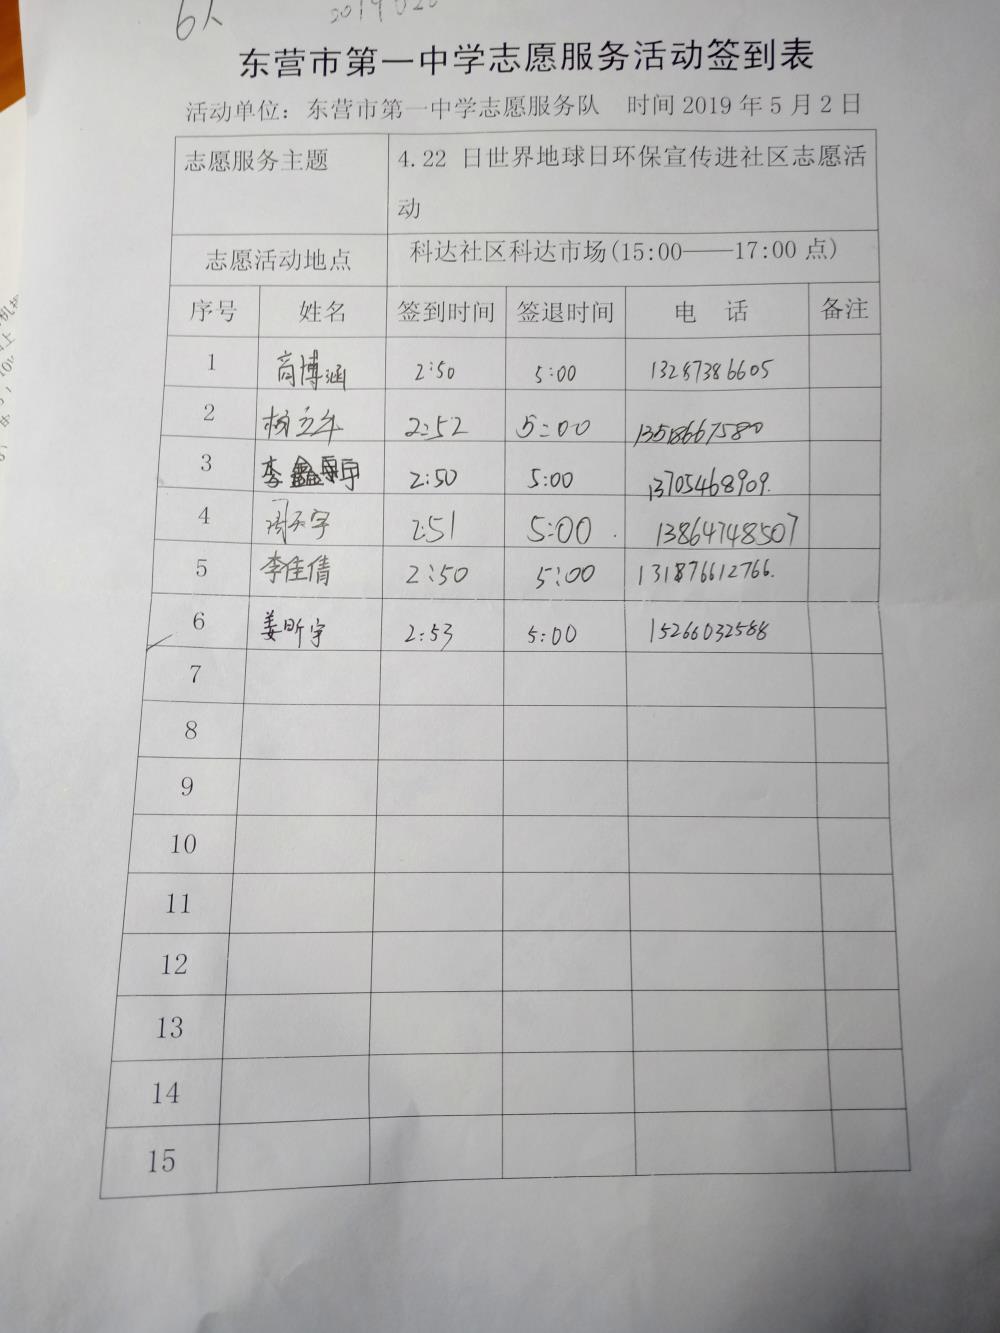 6人
东营市第一中学志愿服务活动签到表
活动单位：东营市第一中学志愿服务队 时间 2019 年 5 月 2 日
志愿服务主题 4.22 日世界地球日环保宣传进社区志愿活
动
志愿活动地点 科达社区科达市场(15:00——17:00 点)
序号 姓名 签到时间 签退时间 电 话 备注
1 商博涵 2:50 5:00 13287386605
2 杨立年 2:52 5:00 13518667580
3 李鑫宇 2:50 5:00 13705468909.
4 周天宇 2:51 5:00 13864748507
5 李佳倩 2:50 5:00 131876612766.
6 姜昕宇 2:53 5:00 15266032588
7
8
9
10
11
12
13
14
15